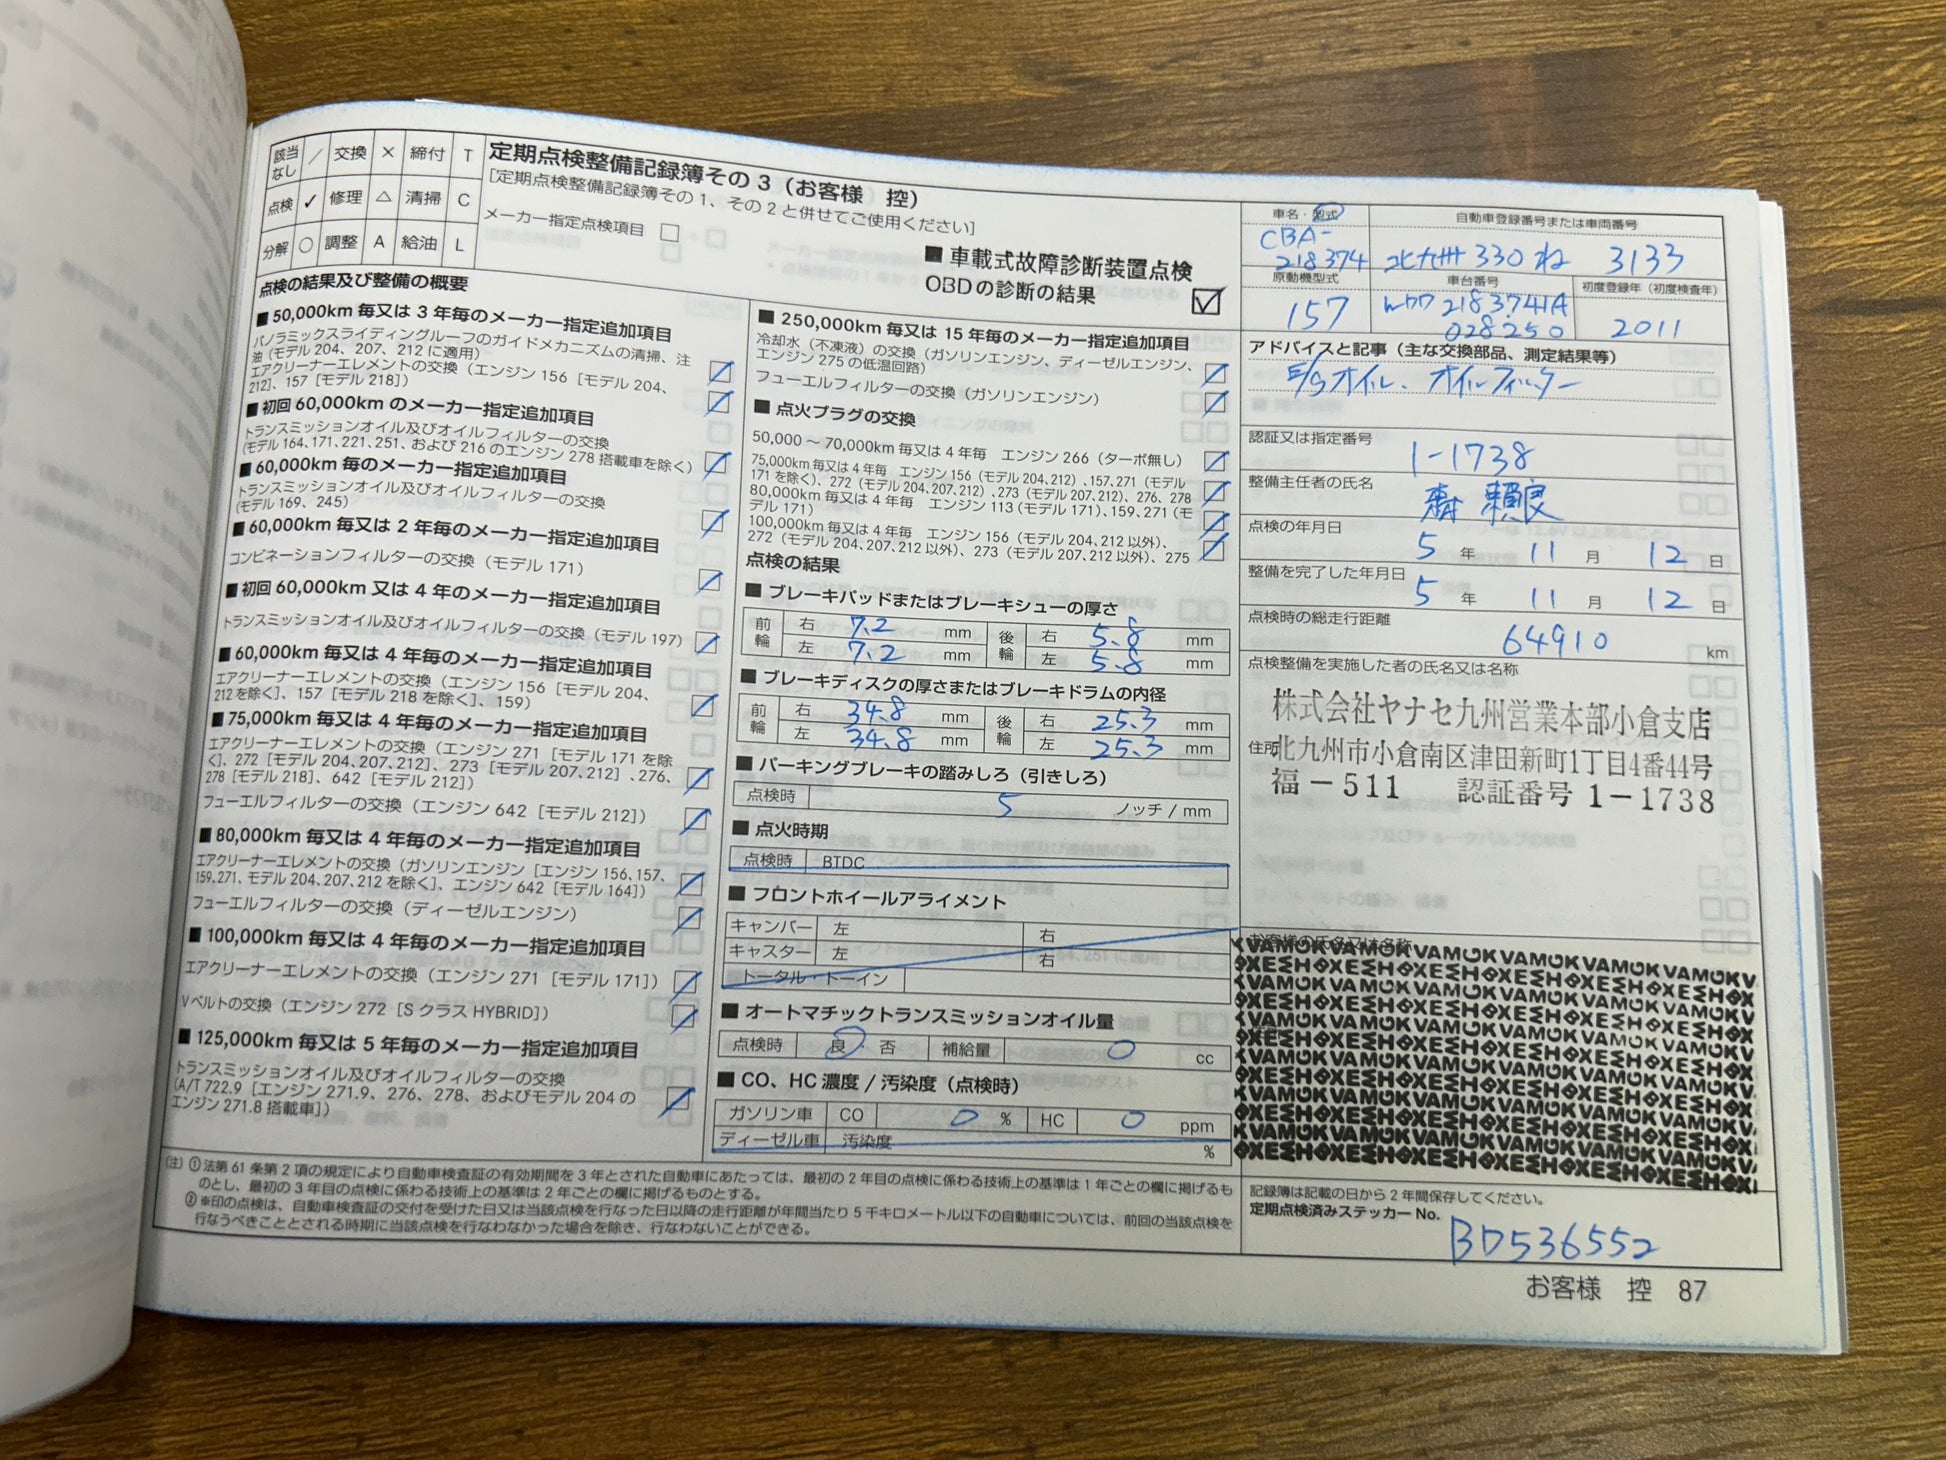 該当なし ／ 交換 × 締付 T
点検 ✓ 修理 △ 清掃 C
分解 ○ 調整 A 給油 L
定期点検整備記録簿その3（お客様 控）
［定期点検整備記録簿その1、その2と併せてご使用ください］
メーカー指定点検項目 □
■ 車載式故障診断装置点検
OBDの診断の結果 ☑
点検の結果及び整備の概要
■ 50,000km 毎又は 3 年毎のメーカー指定追加項目
パノラミックスライディングルーフのガイドメカニズムの清掃、注
油（モデル 204、207、212 に適用）
エアクリーナーエレメントの交換（エンジン 156［モデル 204、
212］、157［モデル 218］）
■ 初回 60,000km のメーカー指定追加項目
トランスミッションオイル及びオイルフィルターの交換
（モデル 164、171、221、251、および 216 のエンジン 278 搭載車を除く）
■ 60,000km 毎のメーカー指定追加項目
トランスミッションオイル及びオイルフィルターの交換
（モデル 169、245）
■ 60,000km 毎又は 2 年毎のメーカー指定追加項目
コンビネーションフィルターの交換（モデル 171）
■ 初回 60,000km 又は 4 年のメーカー指定追加項目
トランスミッションオイル及びオイルフィルターの交換（モデル 197）
■ 60,000km 毎又は 4 年毎のメーカー指定追加項目
エアクリーナーエレメントの交換（エンジン 156［モデル 204、
212 を除く］、157［モデル 218 を除く］、159）
■ 75,000km 毎又は 4 年毎のメーカー指定追加項目
エアクリーナーエレメントの交換（エンジン 271［モデル 171 を除
く］、272［モデル 204、207、212］、273［モデル 207、212］、276、
278［モデル 218］、642［モデル 212］）
フューエルフィルターの交換（エンジン 642［モデル 212］）
■ 80,000km 毎又は 4 年毎のメーカー指定追加項目
エアクリーナーエレメントの交換（ガソリンエンジン［エンジン 156、157、
159、271、モデル 204、207、212 を除く］、エンジン 642［モデル 164］）
フューエルフィルターの交換（ディーゼルエンジン）
■ 100,000km 毎又は 4 年毎のメーカー指定追加項目
エアクリーナーエレメントの交換（エンジン 271［モデル 171］）
Vベルトの交換（エンジン 272［S クラス HYBRID］）
■ 125,000km 毎又は 5 年毎のメーカー指定追加項目
トランスミッションオイル及びオイルフィルターの交換
（A/T 722.9［エンジン 271.9、276、278、およびモデル 204 の
エンジン 271.8 搭載車］）
■ 250,000km 毎又は 15 年毎のメーカー指定追加項目
冷却水（不凍液）の交換（ガソリンエンジン、ディーゼルエンジン、
エンジン 275 の低温回路）
フューエルフィルターの交換（ガソリンエンジン）
■ 点火プラグの交換
50,000 ～ 70,000km 毎又は 4 年毎 エンジン 266（ターボ無し）
75,000km 毎又は 4 年毎 エンジン 156（モデル 204、212）、157、271（モデル
171 を除く）、272（モデル 204、207、212）、273（モデル 207、212）、276、278
80,000km 毎又は 4 年毎 エンジン 113（モデル 171）、159、271（モ
デル 171）
100,000km 毎又は 4 年毎 エンジン 156（モデル 204、212 以外）、
272（モデル 204、207、212 以外）、273（モデル 207、212 以外）、275
点検の結果
■ ブレーキパッドまたはブレーキシューの厚さ
前輪 右 7.2 mm 後輪 右 5.8 mm
左 7.2 mm 左 5.8 mm
■ ブレーキディスクの厚さまたはブレーキドラムの内径
前輪 右 34.8 mm 後輪 右 25.3 mm
左 34.8 mm 左 25.3 mm
■ パーキングブレーキの踏みしろ（引きしろ）
点検時 5 ノッチ / mm
■ 点火時期
点検時 BTDC
■ フロントホイールアライメント
キャンバー 左 右
キャスター 左 右
トータル・トーイン
■ オートマチックトランスミッションオイル量
点検時 良・否 補給量 0 cc
■ CO、HC 濃度 / 汚染度（点検時）
ガソリン車 CO 0 % HC 0 ppm
ディーゼル車 汚染度 %
車名・型式 自動車登録番号または車両番号
CBA-
218374 北九州 330 ね 3133
原動機型式 車台番号 初度登録年（初度検査年）
157 WDD 2183741A
028250 2011
アドバイスと記事（主な交換部品、測定結果等）
E/Gオイル、オイルフィルター
認証又は指定番号
1-1738
整備主任者の氏名
点検の年月日
5 年 11 月 12 日
整備を完了した年月日
5 年 11 月 12 日
点検時の総走行距離
64910 km
点検整備を実施した者の氏名又は名称
株式会社ヤナセ九州営業本部小倉支店
住所 北九州市小倉南区津田新町1丁目4番44号
福－511 認証番号 1－1738
お客様の氏名又は名称
記録簿は記載の日から 2 年間保存してください。
定期点検済みステッカー No.
BD536552
（注）①法第 61 条第 2 項の規定により自動車検査証の有効期間を 3 年とされた自動車にあたっては、最初の 2 年目の点検に係わる技術上の基準は 1 年ごとの欄に掲げるも
のとし、最初の 3 年目の点検に係わる技術上の基準は 2 年ごとの欄に掲げるものとする。
②※印の点検は、自動車検査証の交付を受けた日又は当該点検を行なった日以降の走行距離が年間当たり 5 千キロメートル以下の自動車については、前回の当該点検を
行なうべきこととされる時期に当該点検を行なわなかった場合を除き、行なわないことができる。
お客様 控 87